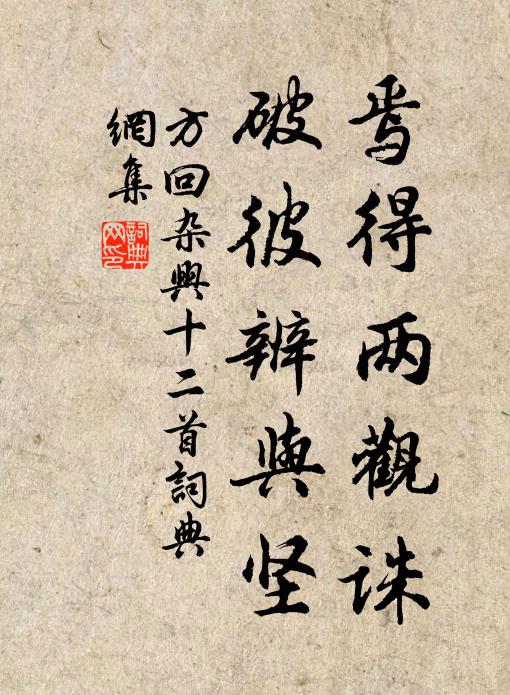 焉得两觀誅
破彼辨與坚
方回杂興十二首詞典
網集
詞典网印